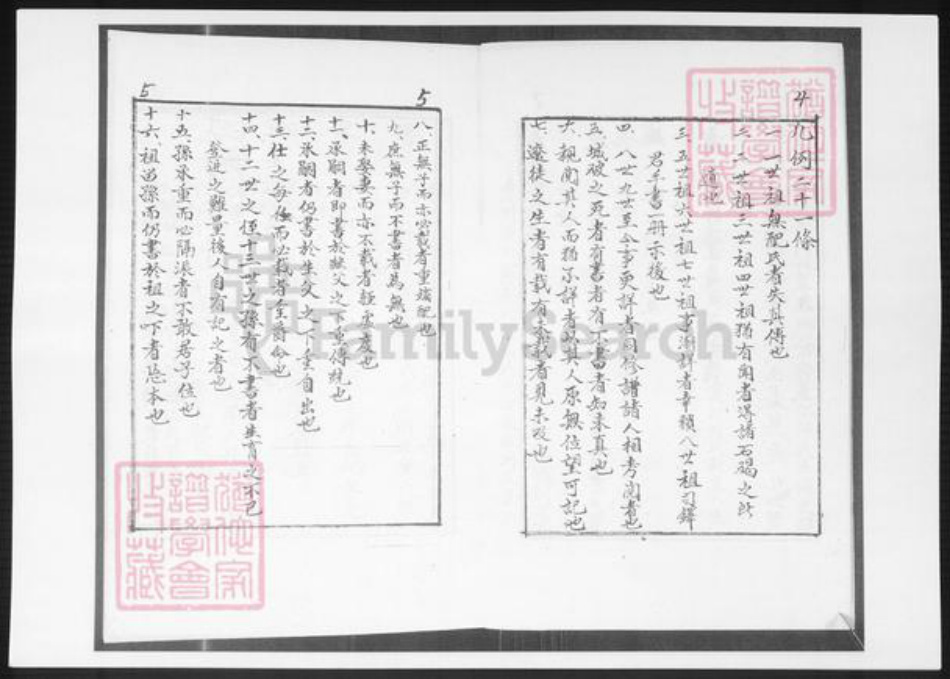 4
凡例二十一條
一、一世祖無配氏者失其傳也
二、二世祖三世祖四世祖猶有聞者得諸石碣之所
遺也
三、五世祖六世祖七世祖事漸詳者幸頼八世祖
君手書一冊示後也
四、八世九世至今事更詳者同修譜諸人相考閱者也
五、城破之死者有書者有不書者知未真也
六、親聞其人而猶不詳者以其人原無位望可記也
七、遼徙之生者有載有未載者見未及也
5
八、正無子而亦必載者重嫡配也
九、庶無子而不書者爲無也
十、未娶妻而亦不載者
十一、承嗣者即書於繼父之下重傳統也
十二、承嗣者仍書於生父之下重自出也
十三、仕之每任而必載者全君命也
十四、十二世之侄十三世之孫有不書者生育之不已
登進之難量後人自有記之者也
5
十五、孫承重而必隔派者不敢居子位也
十六、祖當孫而仍書於祖之下者本也
施氏家譜學會收藏
施氏家譜學會收藏
FamilySearch